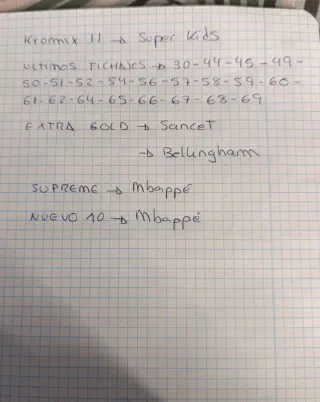 Kromix 11 → Super Kids
ULTIMOS FICHAJES → 30-44-45-49-
50-51-52-54-56-57-58-59-60-
61-62-64-65-66-67-68-69
EXTRA GOLD → Sancet
→ Bellingham
SUPREME → Mbappé
NUEVO 10 → Mbappé